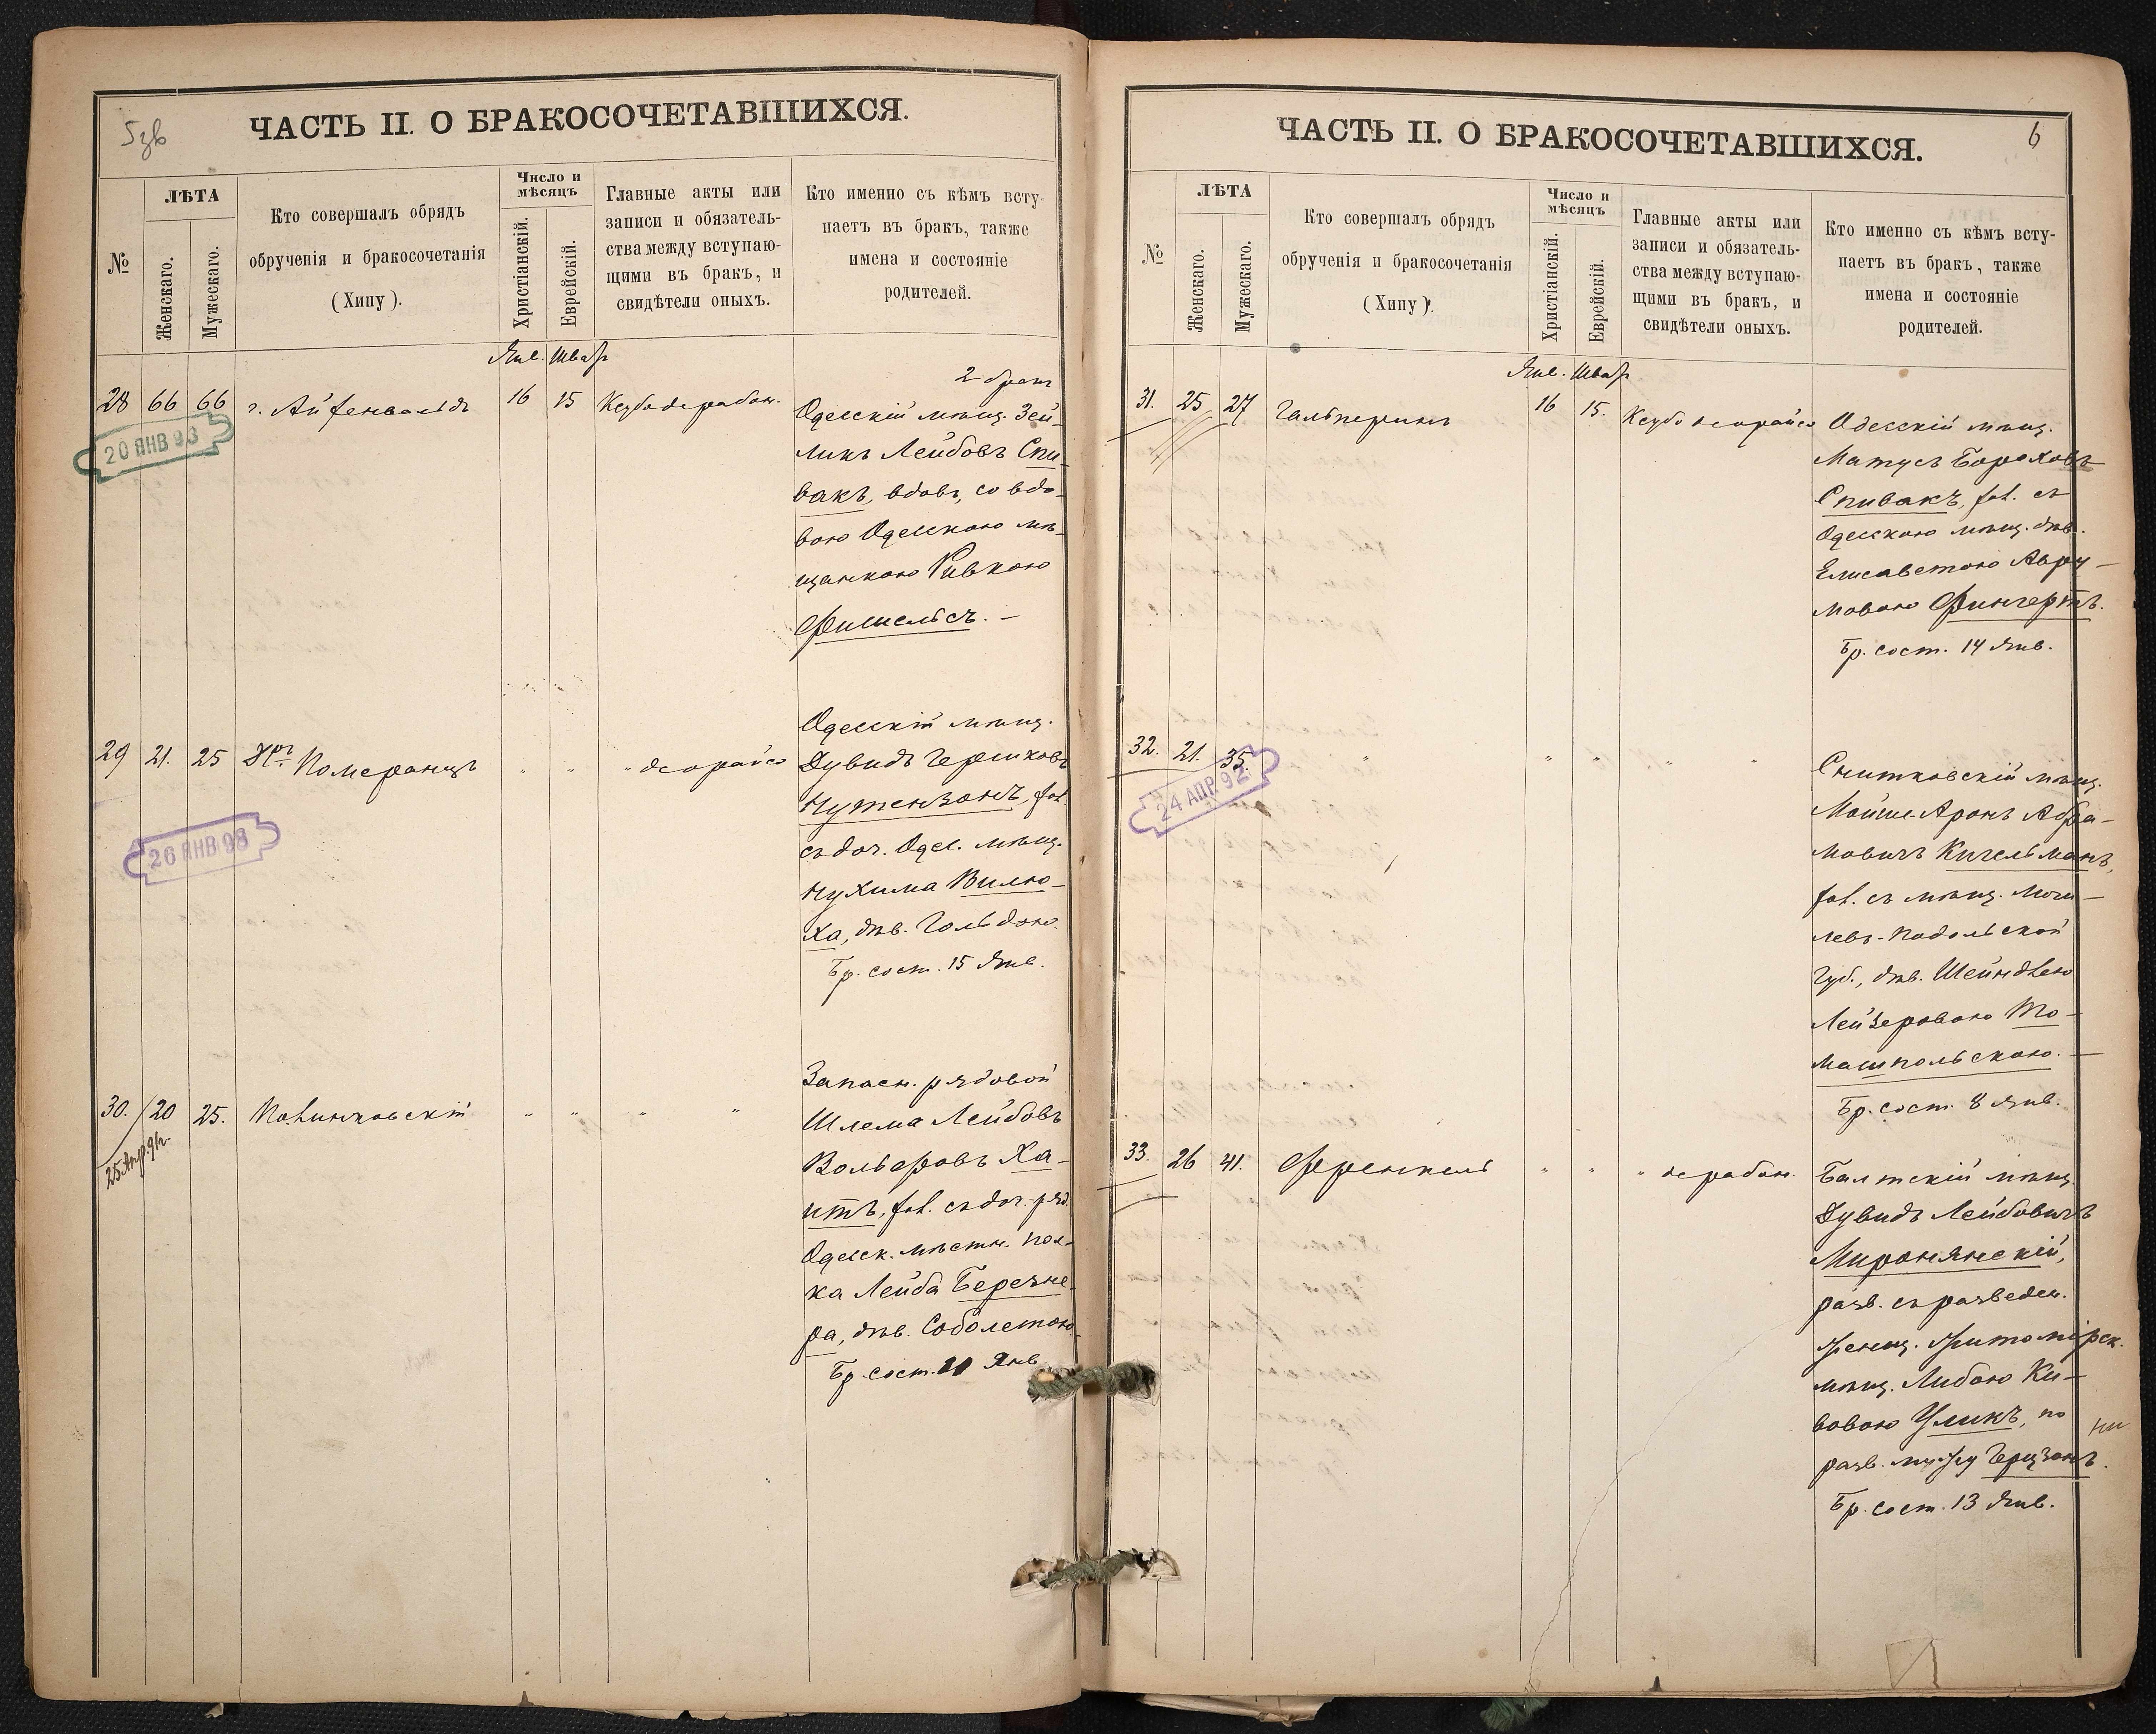 5 зв
ЧАСТЬ II. О БРАКОСОЧЕТАВШИХСЯ.
№
ЛѢТА
Женскаго.
Мужескаго.
Кто совершалъ обрядъ
обрученія и бракосочетанія
(Хипу).
Число и
мѣсяцъ
Христіанскій.
Еврейскій.
Главные акты или
записи и обязатель-
ства между вступаю-
щими въ бракъ, и
свидѣтели оныхъ.
Кто именно съ кѣмъ всту-
паетъ въ бракъ, также
имена и состояніе
родителей.
Янв. Шват
28 66 66 г. Айзенвальдъ 16 15 Ксубо дерабон.
20 ЯНВ 93
2 брак
Одесскій мѣщ. Зей-
ликъ Лейбовъ Спи-
вакъ, вдов, со вдо-
вою Одесскою мѣ-
щанкою Ривкою
Фишельсъ. —
29 21. 25 Померанцъ " " " деорайсо
26 ЯНВ 98
Одесскій мѣщ.
Дувидъ Гершковъ
Нутензонъ, хол.
съ доч. Одес. мѣщ.
Нухима Вилко-
ха, дѣв. Гольдою.
Бр. сост. 15 Янв.
30. 20 25. Полинковскій " " " "
25 Апр. 91 г.
Запасн. рядовой
Шлема Лейбовъ
Вольфовъ Ха-
итъ, хол. съ доч. ряд.
Одесск. мѣстн. пол-
ка Лейба Березне-
ра, дѣв. Соболетою.
Бр. сост. 11 Янв
ЧАСТЬ II. О БРАКОСОЧЕТАВШИХСЯ.
6
№
ЛѢТА
Женскаго.
Мужескаго.
Кто совершалъ обрядъ
обрученія и бракосочетанія
(Хипу).
Число и
мѣсяцъ
Христіанскій.
Еврейскій.
Главные акты или
записи и обязатель-
ства между вступаю-
щими въ бракъ, и
свидѣтели оныхъ.
Кто именно съ кѣмъ всту-
паетъ въ бракъ, также
имена и состояніе
родителей.
Янв. Шват
31. 25 27 Гальперинъ 16 15. Ксубо деорайсо
Одесскій мѣщ.
Матусъ Бороховъ
Спивакъ, хол. съ
Одесскою мѣщ. дѣв.
Елисаветою Авру-
мовою Фингертъ.
Бр. сост. 14 Янв.
32. 21. 35. " " " " "
24 АПР 92
Снитковскій мѣщ.
Мойше-Аронъ Абра-
мовичъ Кигельманъ,
хол. съ мѣщ. Моги-
левъ-Подольской
Губ., дѣв. Шейндлею
Лейзеровою То-
машпольскою. —
Бр. сост. 8 Янв.
33. 26 41. Френкель " " " дерабон.
Балтскій мѣщ.
Дувидъ Лейбовичъ
Миронянскій,
разв. съ разведен.
женщ. Житомірск.
мѣщ. Либою Ки-
вовою Уликъ, по
разв. мужу Герцзонъ.
Бр. сост. 13 Янв.